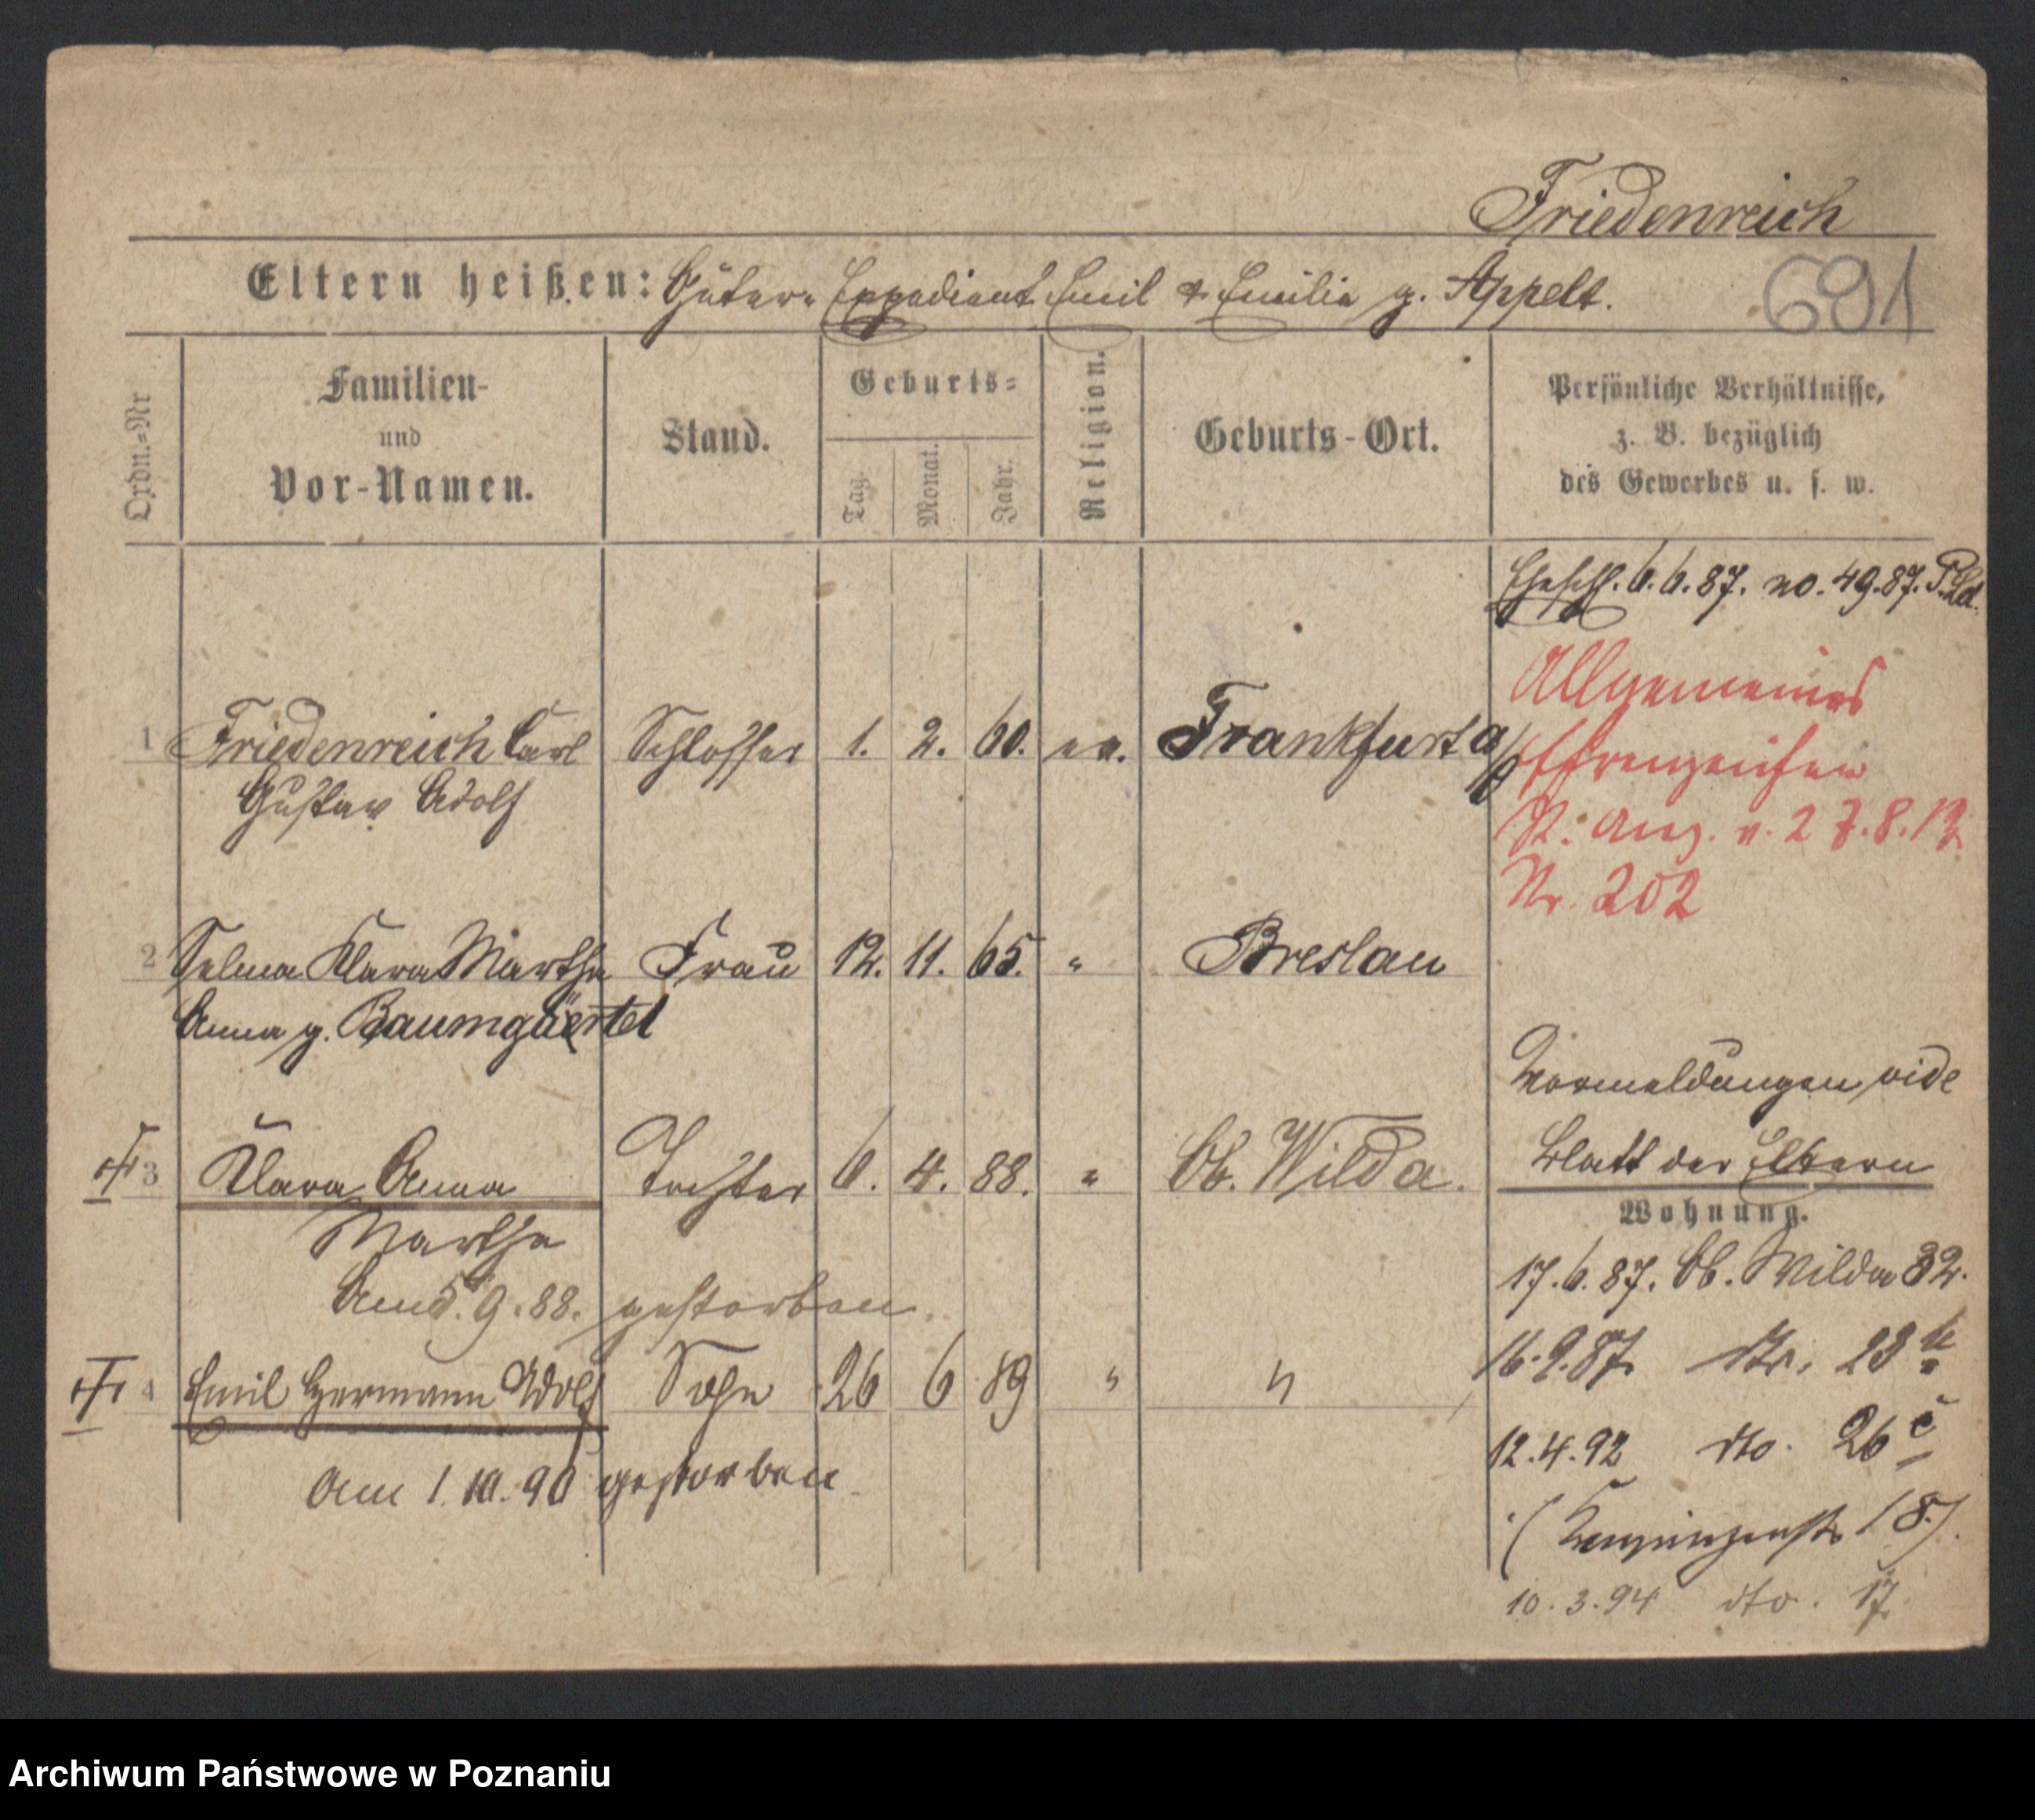 Friedenreich
Eltern heißen: Güter- Expedient Emil & Emilie g. Appelt.
691
Ordn.=Nr
Familien-
und
Vor-Namen.
Stand.
Geburts=
Tag.
Monat.
Jahr.
Religion.
Geburts-Ort.
Persönliche Verhältnisse,
z. B. bezüglich
des Gewerbes u. s. w.
Eheschl. 6.6.87. no. 49.87. P. Ld.
Allgemeines
Ehrenzeichen
St. Anz. v. 27.8.12
Nr. 202
1 Friedenreich Carl Schlosser 1. 2. 60. ev. Frankfurt a/O
Gustav Adolf
2 Selma Klara Martha Frau 12. 11. 65. " Breslau
Anna g. Baumgäertel
Vormeldungen vide
Blatt der Eltern
3 Klara Anna Tochter 6. 4. 88. " Ob. Wilda.
Martha
Am 5. 9. 88. gestorben.
4 Emil Hermann Adolf Sohn 26 6 89 " "
Am 1. 10. 90 gestorben.
Wohnung.
17.6.87. Ob. Wilda 32.
16.9.87. 23
12.4.92 dto. 26 c
18.)
10.3.94 dto. 17.
Archiwum Państwowe w Poznaniu